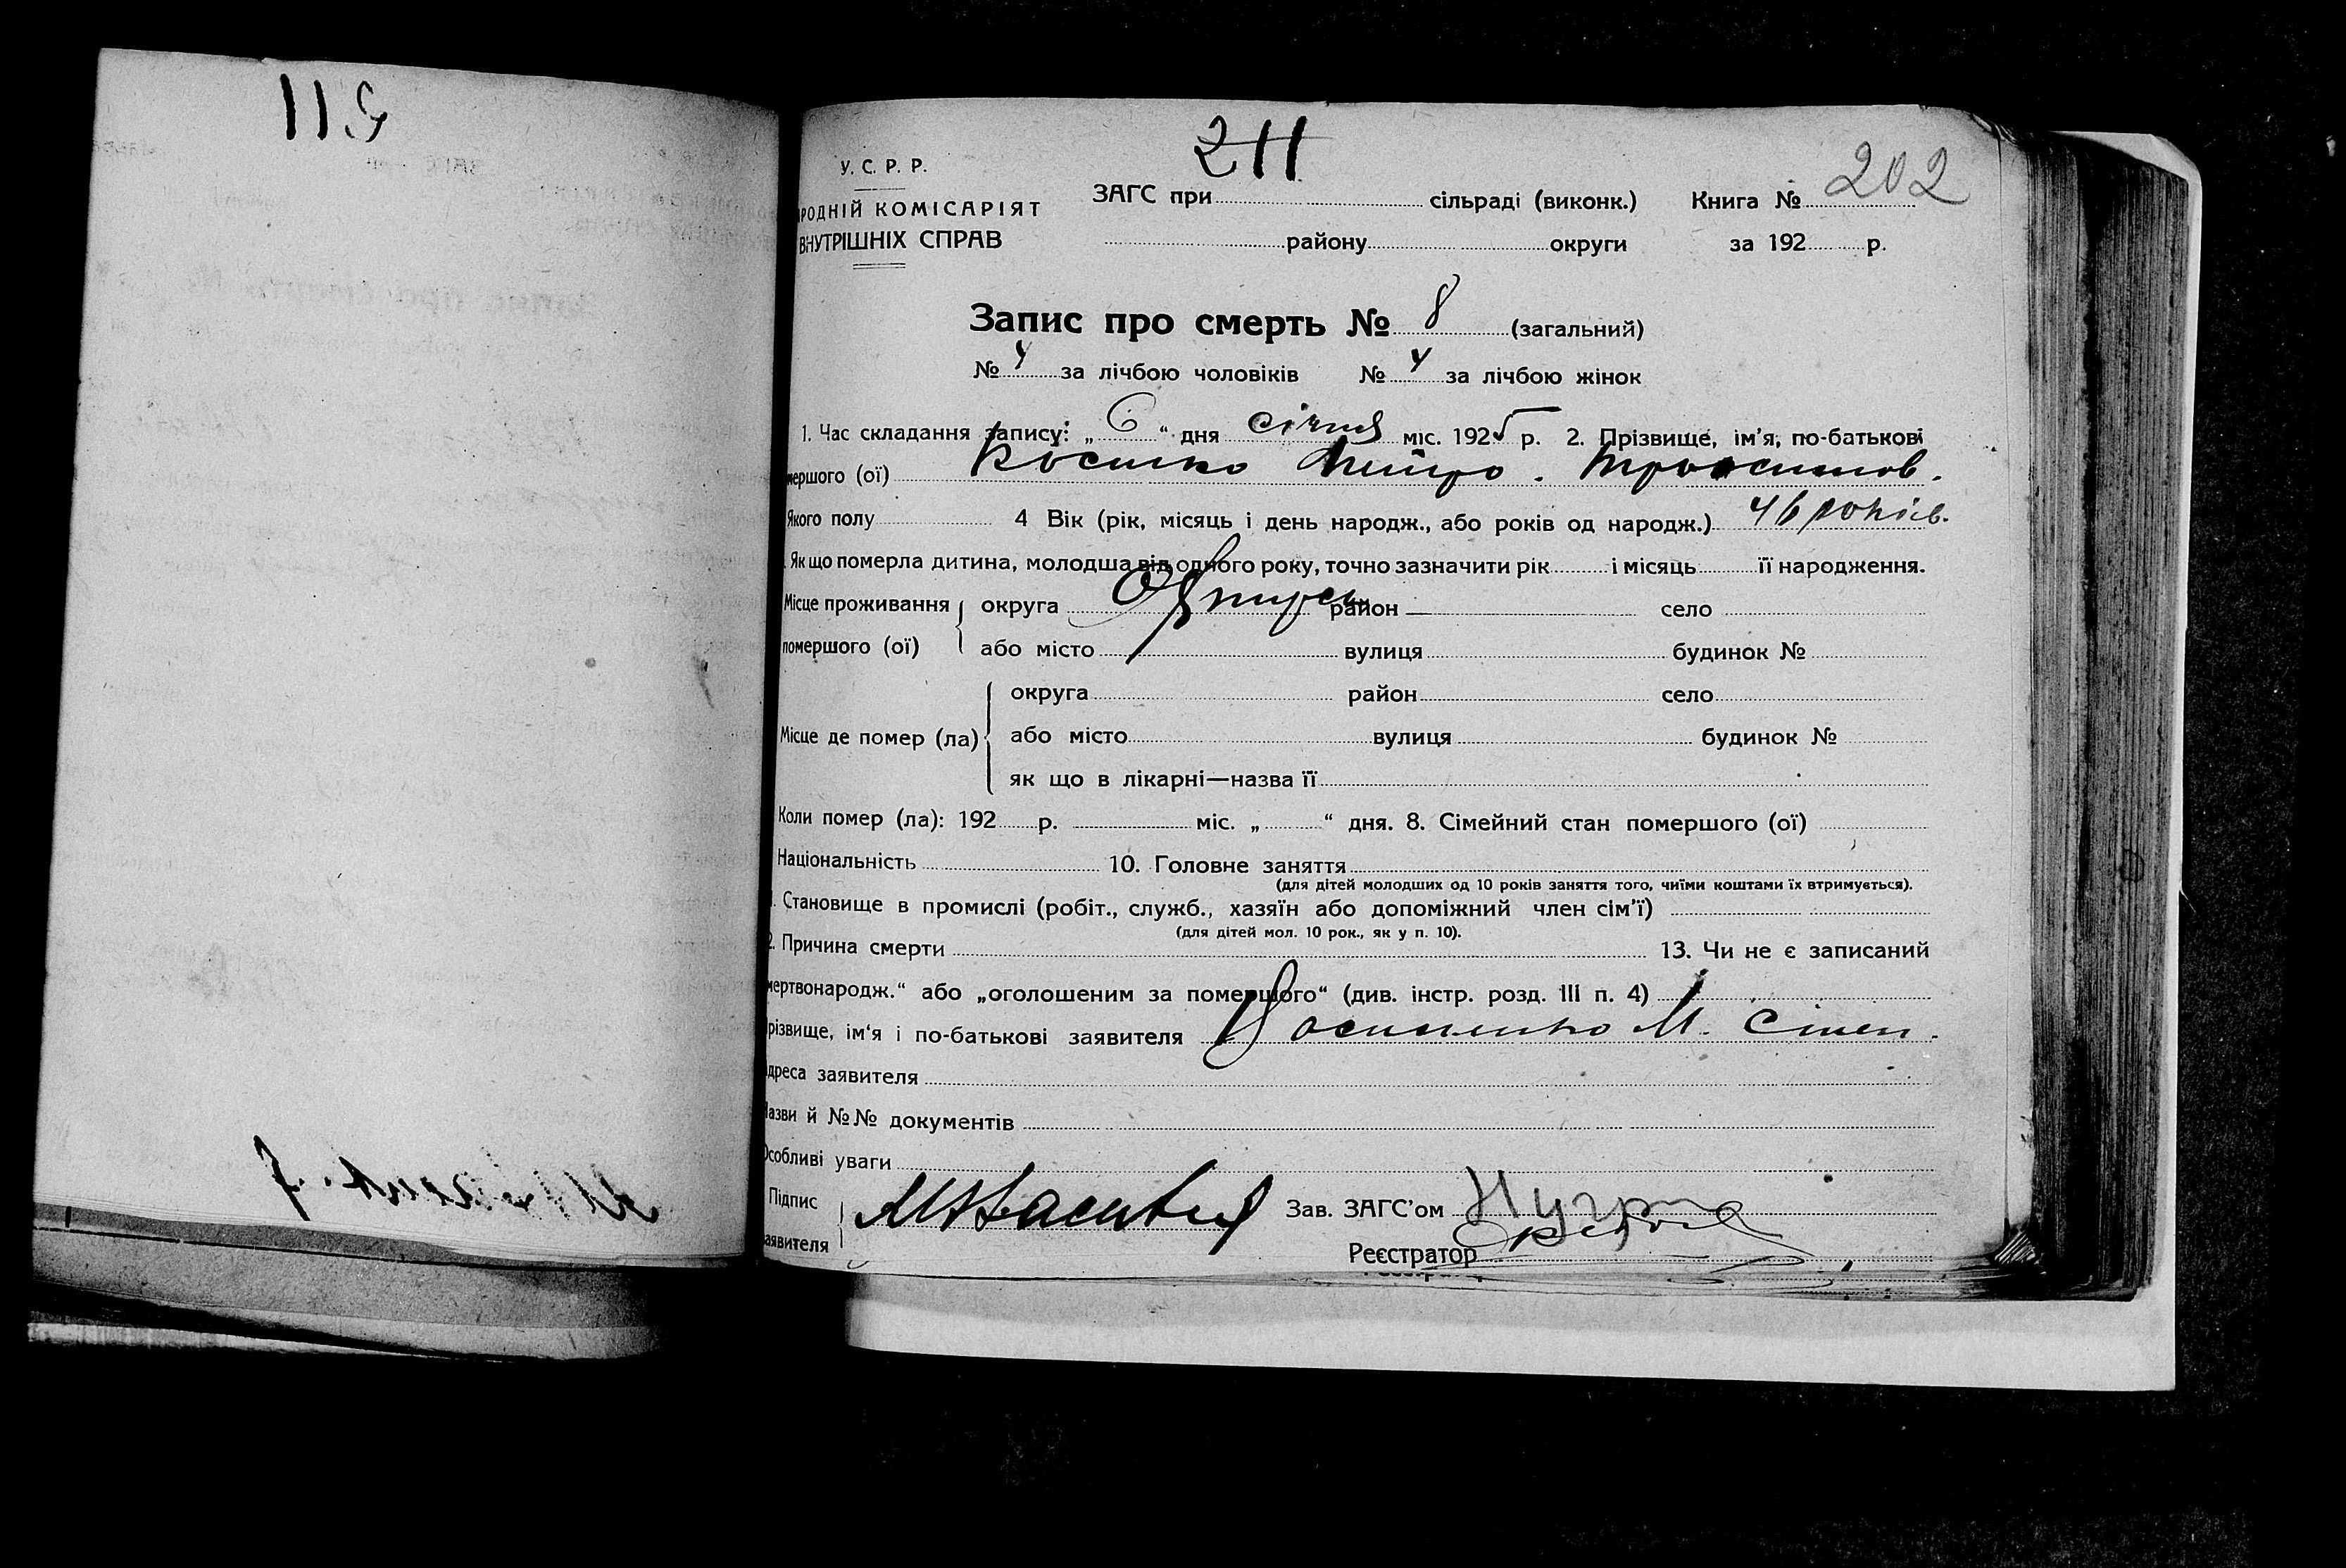 211
202
У. С. Р. Р.
РОДНІЙ КОМІСАРІЯТ
ВНУТРІШНІХ СПРАВ
ЗАГС при сільраді (виконк.) Книга №
району округи за 192 р.
Запис про смерть № 8 (загальний)
№ 4 за лічбою чоловіків № 4 за лічбою жінок
1. Час складання запису: „6“ дня січня міс. 1925 р. 2. Прізвище, ім'я, по-батькові
мершого (ої) Косинко
Якого полу 4 Вік (рік, місяць і день народж., або років од народж.) 46 років.
Як що померла дитина, молодша від одного року, точно зазначити рік і місяць її народження.
Місце проживання округа район село
помершого (ої) або місто вулиця будинок №
округа район село
Місце де помер (ла) або місто вулиця будинок №
як що в лікарні—назва її
Коли помер (ла): 192 р. міс. „ “ дня. 8. Сімейний стан помершого (ої)
Національність 10. Головне заняття
(для дітей молодших од 10 років заняття того, чиїми коштами їх втримується).
1. Становище в промислі (робіт., служб., хазяїн або допоміжний член сім'ї)
(для дітей мол. 10 рок., як у п. 10).
2. Причина смерти 13. Чи не є записаний
мертвонародж.“ або „оголошеним за помершого“ (див. інстр. розд. III п. 4)
різвище, ім'я і по-батькові заявителя М. Сімен.
дреса заявителя
Назви й №№ документів
Особливі уваги
Підпис
заявителя
Зав. ЗАГС'ом
Реєстратор